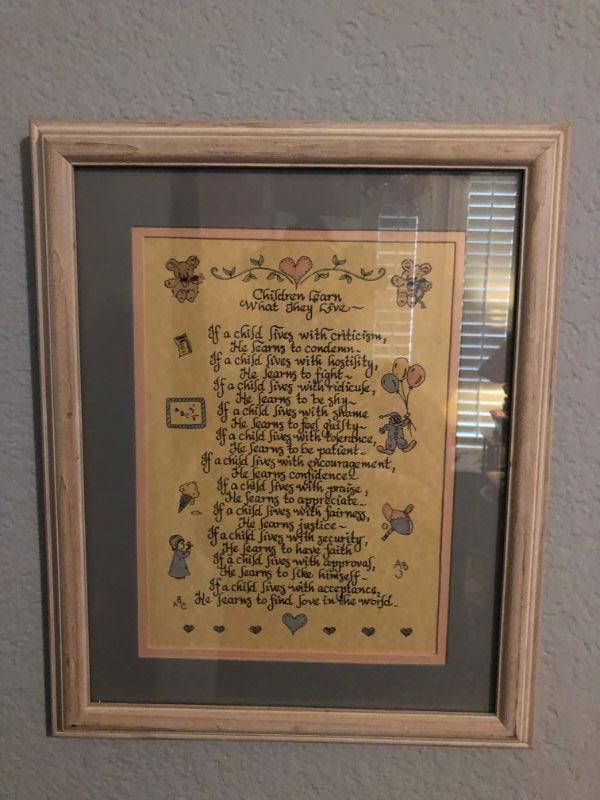 Children Learn
What They Live~
If a child lives with criticism,
He learns to condemn~
If a child lives with hostility,
He learns to fight~
If a child lives with ridicule,
He learns to be shy~
If a child lives with shame
He learns to feel guilty~
If a child lives with tolerance,
He learns to be patient~
If a child lives with encouragement,
He learns confidence~
If a child lives with praise,
He learns to appreciate~
If a child lives with fairness,
He learns justice~
If a child lives with security,
He learns to have faith~
If a child lives with approval,
He learns to like himself~
If a child lives with acceptance,
He learns to find love in the world~
ABC
AB
C
ABC